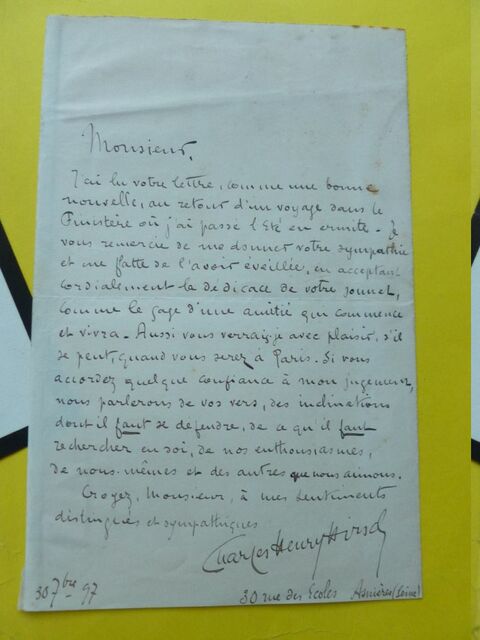 Monsieur,
J'ai lu votre lettre, comme une bonne
nouvelle, au retour d'un voyage dans le
Finistère où j'ai passé l'Eté en ermite. Je
vous remercie de me donner votre sympathie
et me flatte de l'avoir éveillée, en acceptant
cordialement la dédicace de votre sonnet,
comme le gage d'une amitié qui commence
et vivra. Aussi vous verrai-je avec plaisir, s'il
se peut, quand vous serez à Paris. Si vous
accordez quelque confiance à mon jugement,
nous parlerons de vos vers, des inclinations
dont il faut se défendre, de ce qu'il faut
rechercher en soi, de nos enthousiasmes,
de nous-mêmes et des autres que nous aimons.
Croyez, Monsieur, à mes sentiments
distingués et sympathiques
Charles Henry Hirsch
30 7bre 97
30 rue des Écoles Asnières (Seine)